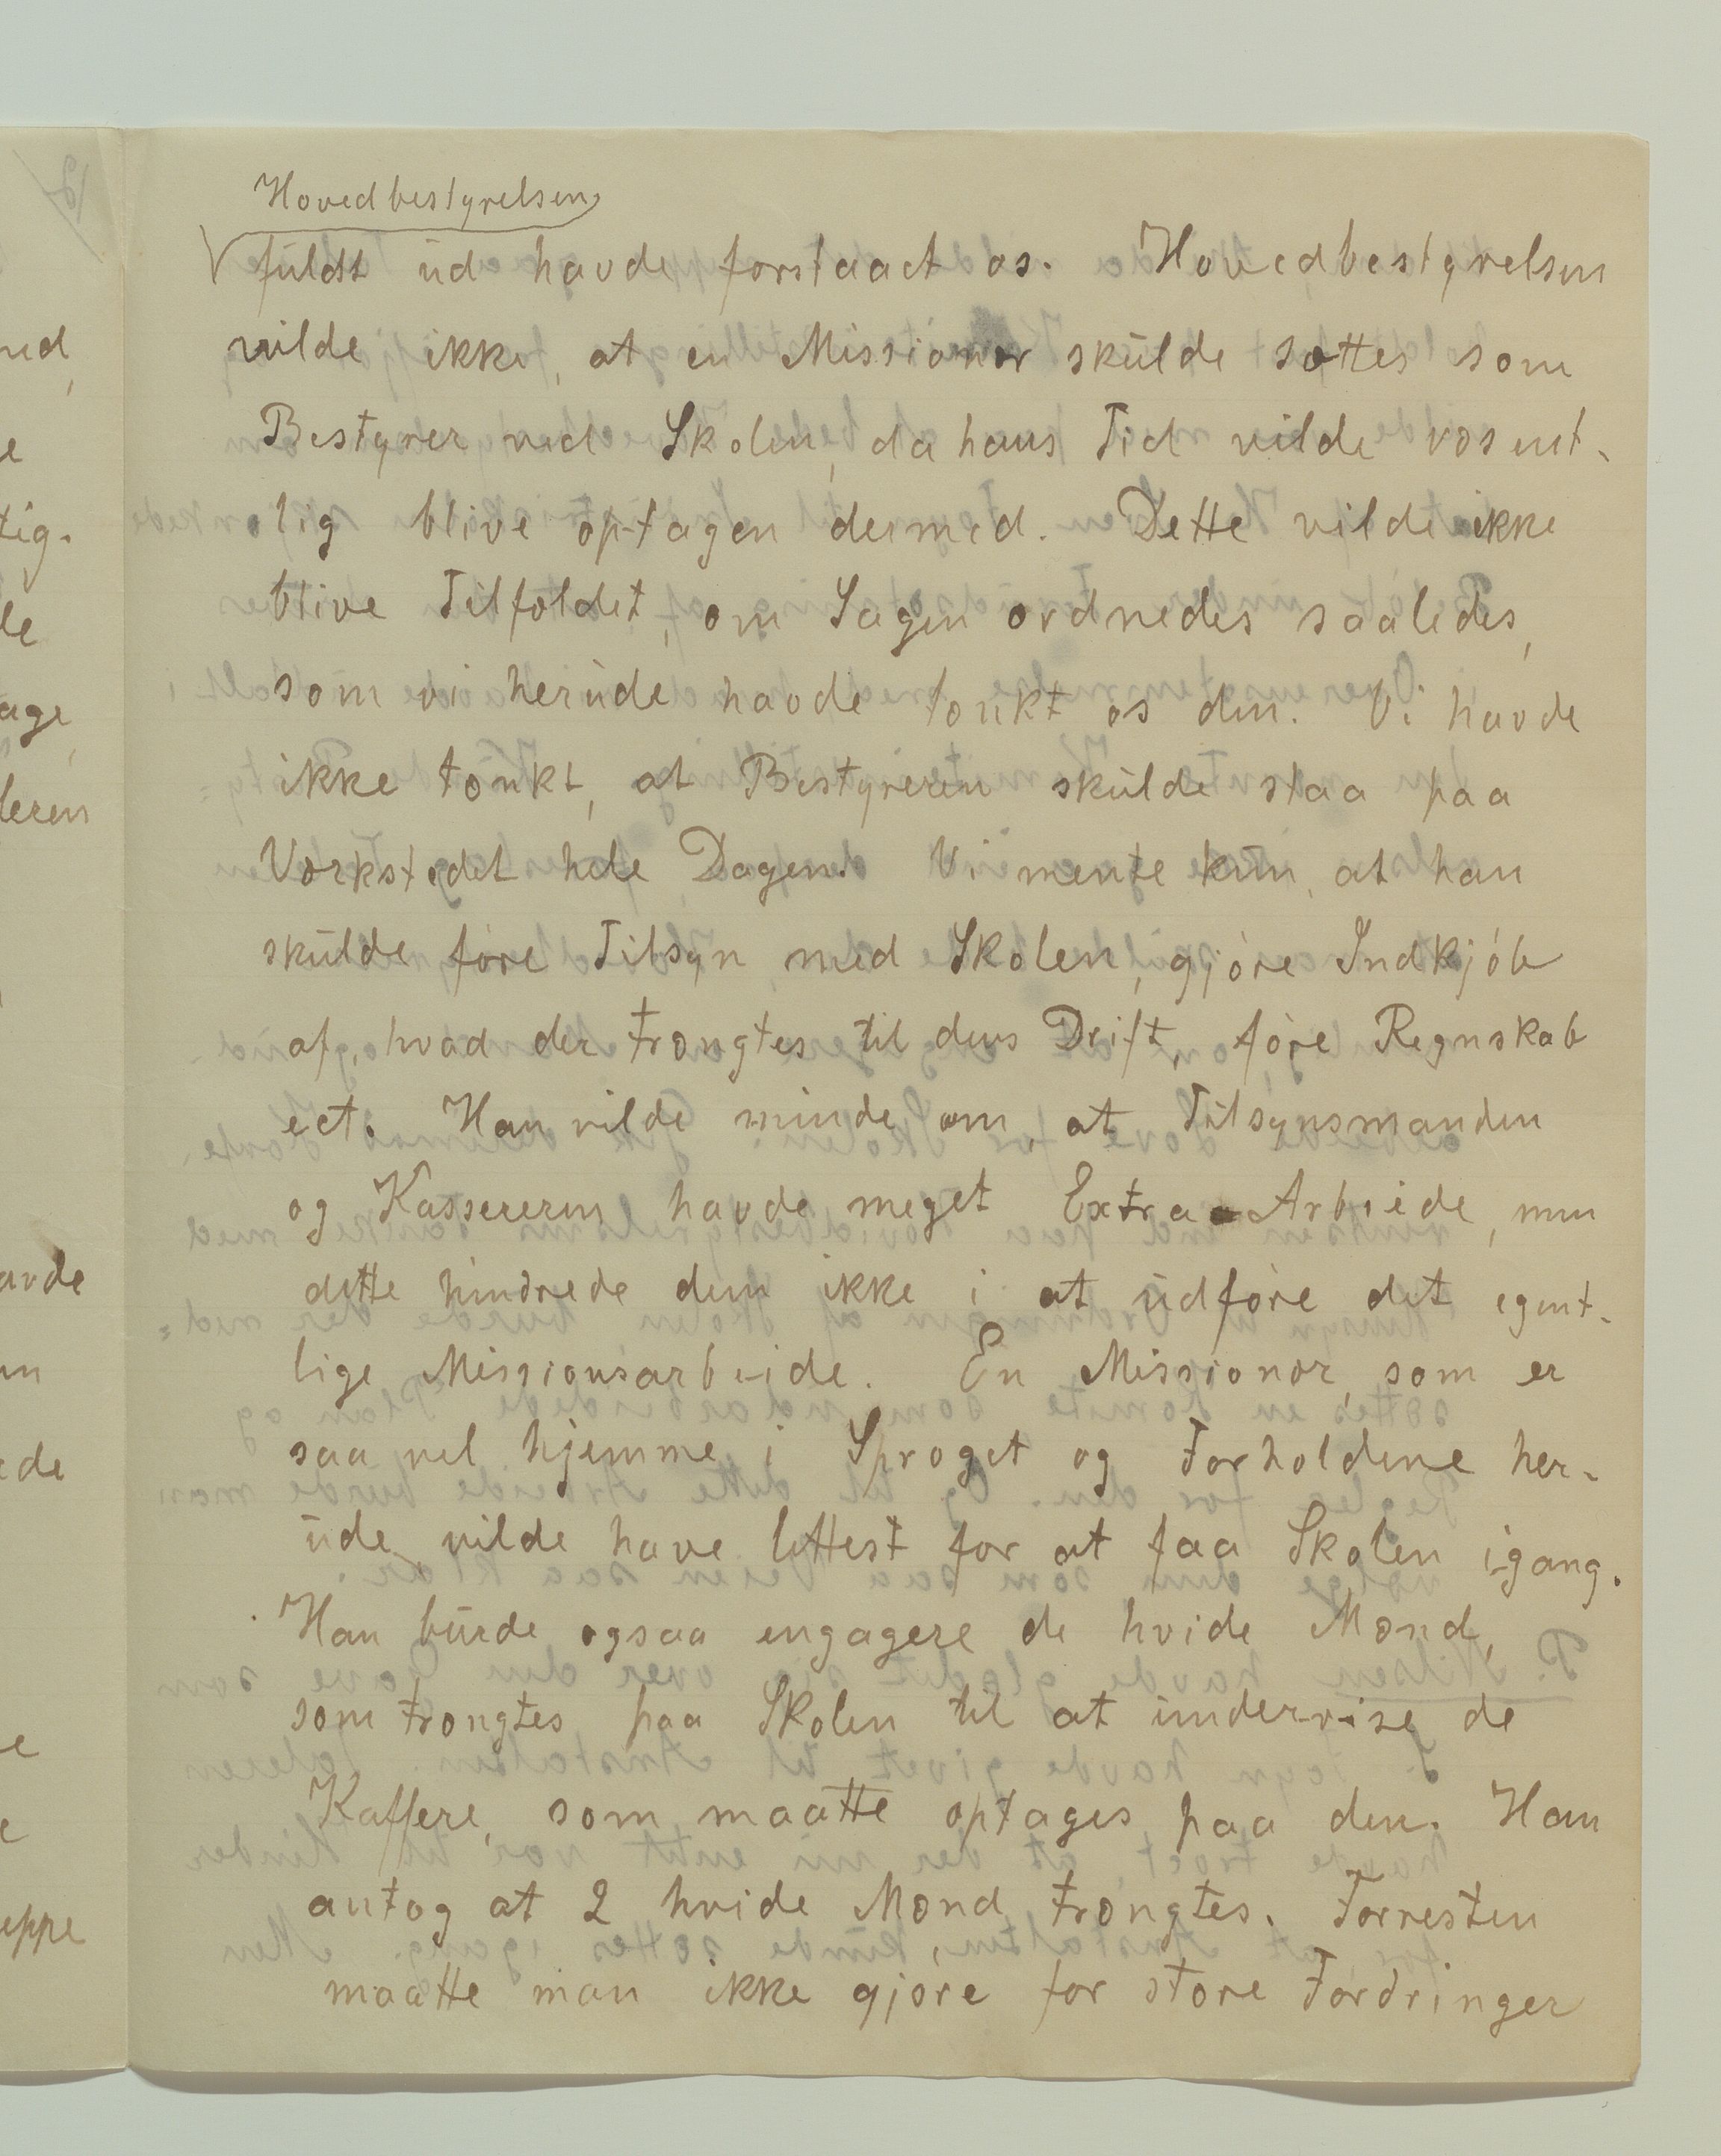 Hovedbestyrelsen
fuldt ud havde forstaaet os. Hovedbestyrelsen
vilde ikke, at en Missionær skulde sættes som
Bestyrer ved Skolen, da hans Tid vilde væsent-
lig blive optagen dermed. Dette vilde ikke
blive Tilfældet, om Sagen ordnedes saaledes,
som vi herude havde tænkt os den. Vi havde
ikke tænkt, at Bestyreren skulde staa paa
Værkstedet hele Dagen. Vi mente kun, at han
skulde føre Tilsyn med Skolen, gjøre Indkjøb
af, hvad der trængtes til dens Drift, føre Regnskab
ect. Han vilde minde om, at Tilsynsmanden
og Kassereren havde meget Extra-Arbeide, men
dette hindrede dem ikke i at udføre det egent-
lige Missionsarbeide. En Missionær, som er
saa vel hjemme i Sproget og Forholdene her-
ude, vilde have lettest for at faa Skolen igang.
Han burde ogsaa engagere de hvide Mænd,
som trængtes paa Skolen til at undervise de
Kaffere, som maatte optages paa den. Han
antog at 2 hvide Mænd trængtes. Forresten
maatte man ikke gjøre for store Fordringer
ved,
e
tig.
le
age,
leren
avde
en
ede
e
e
eppe